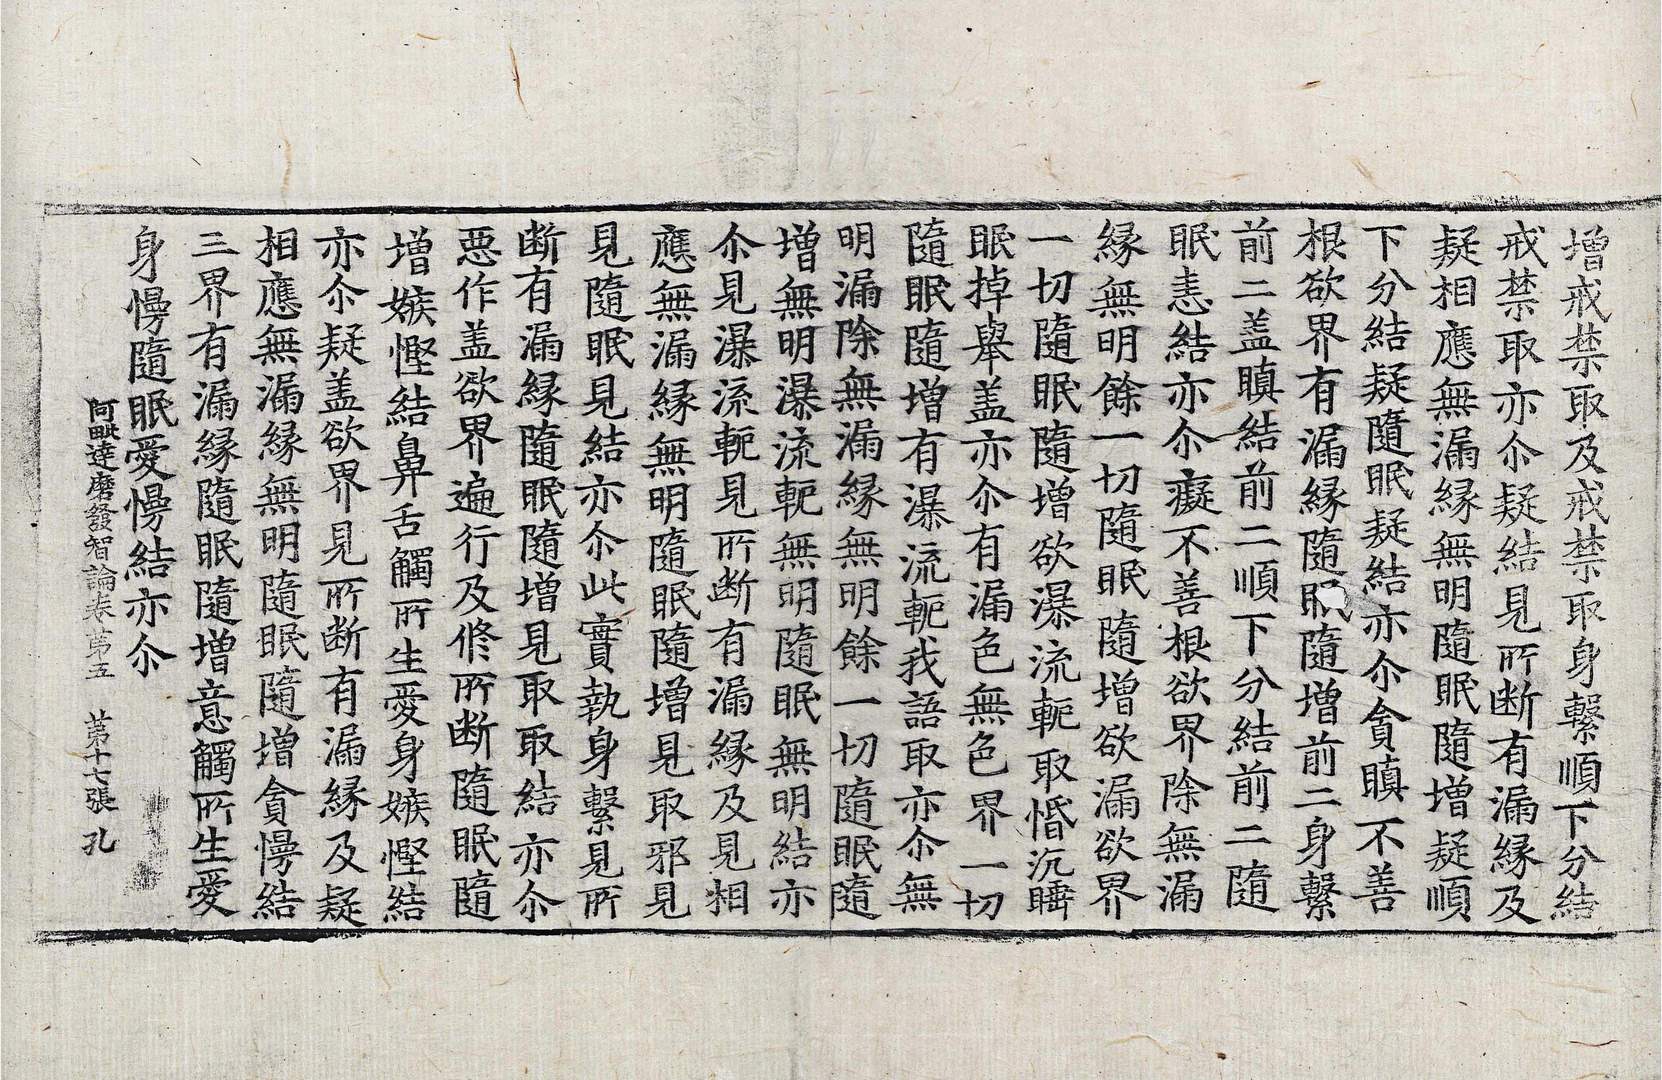 增戒禁取及戒禁取身繫順下分結
戒禁取亦尒疑結見所断有漏緣及
疑相應無漏緣無明隨眠隨增疑順
下分結疑隨眠疑結亦尒貪瞋不善
根欲界有漏緣隨眠隨增前二身繫
前二盖瞋結前二順下分結前二隨
眠恚結亦尒癡不善根欲界除無漏
緣無明餘一切隨眠隨增欲漏欲界
一切隨眠隨增欲瀑流軛取惛沉睡
眠掉舉盖亦尒有漏色無色界一切
隨眠隨增有瀑流軛我語取亦尒無
明漏除無漏緣無明餘一切隨眠隨
增無明瀑流軛無明隨眠無明結亦
尒見瀑流軛見所断有漏緣及見相
應無漏緣無明隨眠隨增見取邪見
見隨眠見結亦尒此實執身繫見所
断有漏緣隨眠隨增見取取結亦尒
惡作盖欲界遍行及修所断隨眠隨
增嫉慳結鼻舌觸所生愛身嫉慳結
亦尒疑盖欲界見所断有漏緣及疑
相應無漏緣無明隨眠隨增貪慢結
三界有漏緣隨眠隨增意觸所生愛
身慢隨眠愛慢結亦尒
阿毗達磨發智論卷第五 第十七張 孔